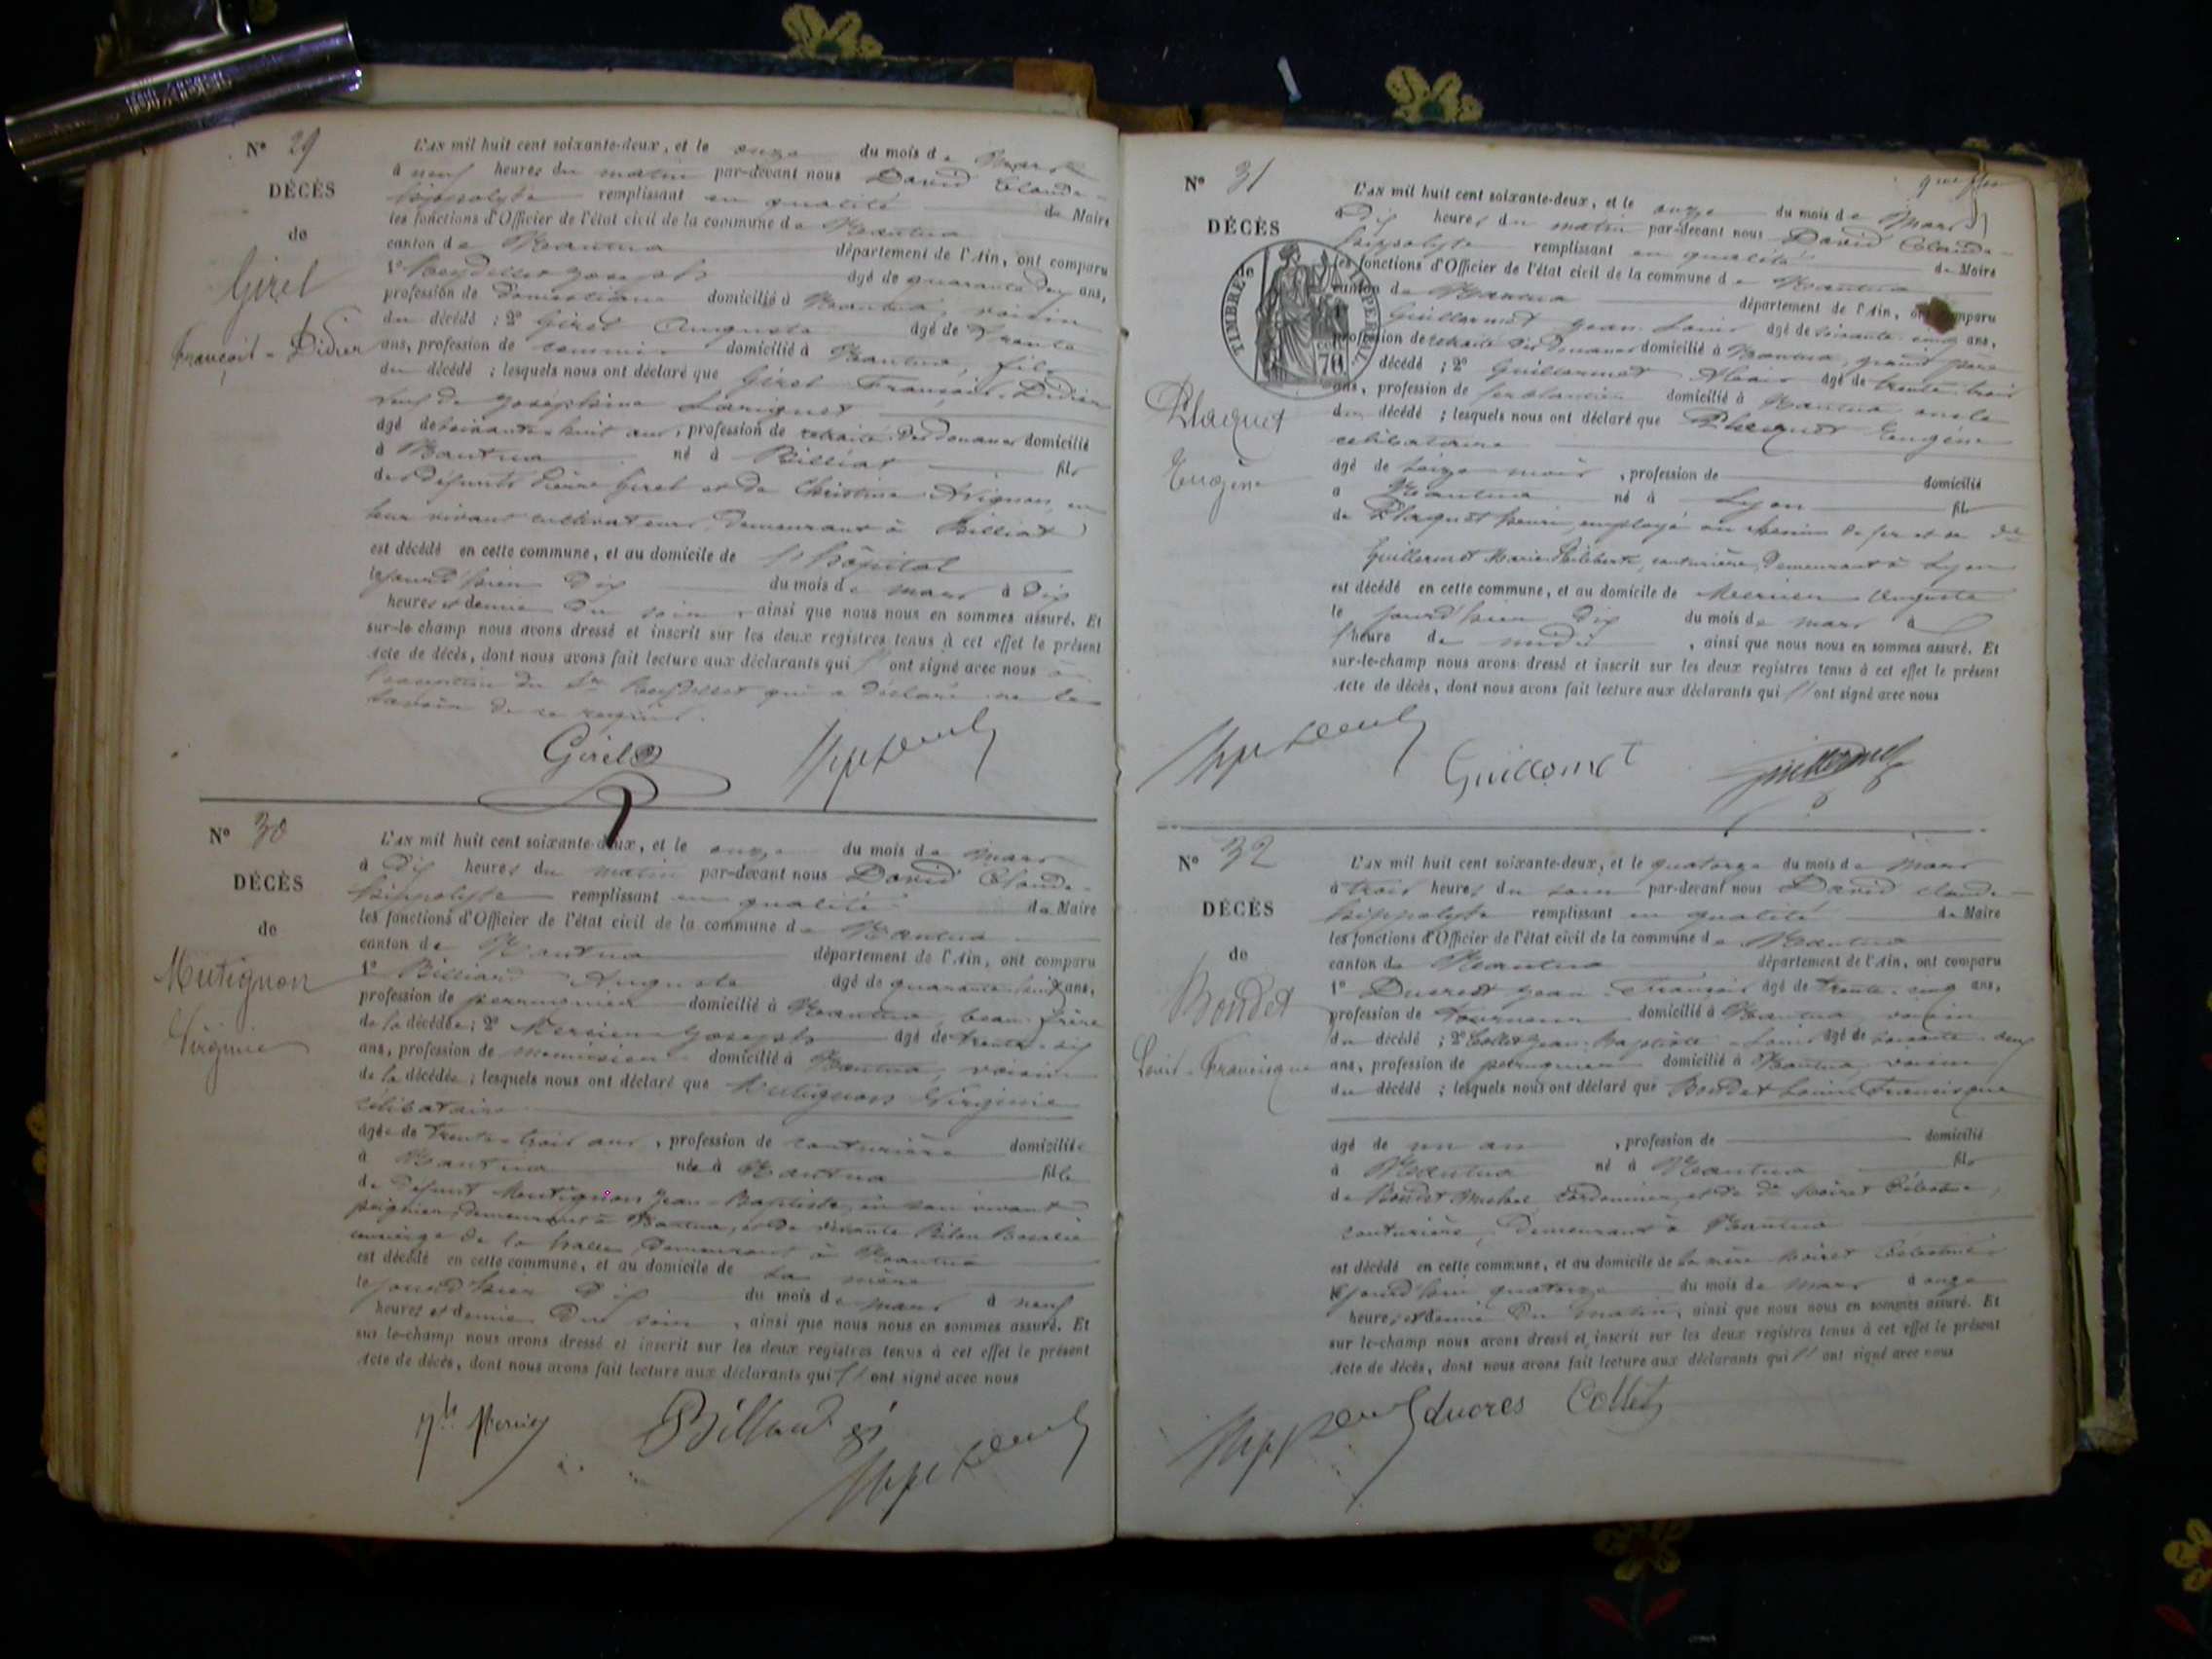 N° 29
DÉCÈS
de
Girel
François-Didier
L'AN mil huit cent soixante-deux, et le onze du mois de Mars
à neuf heures du matin par-devant nous David Claude-
hippolyte remplissant en qualité de Maire
les fonctions d'Officier de l'état civil de la commune de Nantua
canton de Nantua département de l'Ain, ont comparu
1° Reydellet Joseph âgé de quarante deux ans,
profession de Domestique domicilié à Nantua, voisin
du décédé ; 2° Girel Auguste âgé de trente
ans, profession de commis domicilié à Nantua, fils
du décédé ; lesquels nous ont déclaré que Girel François-Didier
veuf de Joséphine
âgé de soixante-huit ans, profession de retraité des douanes domicilié
à Nantua né à Billiat fils
des défunts Pierre Girel et de Christine Avignon, en
leur vivant cultivateurs, demeurant à Billiat
est décédé en cette commune, et au domicile de l'hôpital
le jourd'hier dix du mois de mars à dix
heures et demie du soir, ainsi que nous nous en sommes assuré. Et
sur-le-champ nous avons dressé et inscrit sur les deux registres tenus à cet effet le présent
Acte de décès, dont nous avons fait lecture aux déclarants qui ont signé avec nous à
l'exception du Sr Reydellet qui a déclaré ne le
savoir de ce requis.
Girel
N° 30
DÉCÈS
de
Mutignon
Virginie
L'AN mil huit cent soixante-deux, et le onze du mois de mars
à dix heures du matin par-devant nous David Claude-
hippolyte remplissant en qualité de Maire
les fonctions d'Officier de l'état civil de la commune de Nantua
canton de Nantua département de l'Ain, ont comparu
1° Billiard Auguste âgé de quarante-huit ans,
profession de perruquier domicilié à Nantua, beau-frère
de la décédée ; 2° Mercier Joseph âgé de trente-six
ans, profession de menuisier domicilié à Nantua, voisin
de la décédée ; lesquels nous ont déclaré que Mutignon Virginie
célibataire
âgée de trente-trois ans, profession de couturière domiciliée
à Nantua née à Nantua fille
de défunt Mutignon Jean-Baptiste, en son vivant
peignier, demeurant à Nantua, et de vivante Rosalie
concierge de la halle, demeurant à Nantua
est décédé en cette commune, et au domicile de sa mère
le jourd'hier dix du mois de mars à neuf
heures et demie du soir, ainsi que nous nous en sommes assuré. Et
sur le-champ nous avons dressé et inscrit sur les deux registres tenus à cet effet le présent
Acte de décès, dont nous avons fait lecture aux déclarants qui ont signé avec nous
N° 31
DÉCÈS
de
TIMBRE IMPERIAL
70
Plaquet
Eugène
L'AN mil huit cent soixante-deux, et le onze du mois de Mars
à dix heures du matin par-devant nous David Claude-
hippolyte remplissant en qualité de Maire
les fonctions d'Officier de l'état civil de la commune de Nantua
canton de Nantua département de l'Ain, ont comparu
Guillermet Jean-Louis âgé de soixante-cinq ans,
profession de retraité des Douanes domicilié à Nantua, grand père
décédé ; 2° Guillermet Alexis âgé de trente-trois
ans, profession de ferblantier domicilié à Nantua, oncle
du décédé ; lesquels nous ont déclaré que Plaquet Eugène
célibataire
âgé de seize mois, profession de domicilié
à Nantua né à Lyon fils
de Plaquet henri, employé au chemin de fer et de
Guillermet Marie Philiberte, couturière, demeurant à Lyon
est décédé en cette commune, et au domicile de Mercier Auguste
le jourd'hier dix du mois de mars à
l'heure de midi, ainsi que nous nous en sommes assuré. Et
sur-le-champ nous avons dressé et inscrit sur les deux registres tenus à cet effet le présent
Acte de décès, dont nous avons fait lecture aux déclarants qui ont signé avec nous
Guillermet
N° 32
DÉCÈS
de
Bondet
Louis-Francisque
L'AN mil huit cent soixante-deux, et le quatorze du mois de mars
à trois heures du soir par-devant nous David claude-
hippolyte remplissant en qualité de Maire
les fonctions d'Officier de l'état civil de la commune de Nantua
canton de Nantua département de l'Ain, ont comparu
1° Ducrest Jean-François âgé de trente-cinq ans,
profession de tourneur domicilié à Nantua, voisin
du décédé ; 2° Collet Jean-Baptiste-Louis âgé de soixante-deux
ans, profession de perruquier domicilié à Nantua, voisin
du décédé ; lesquels nous ont déclaré que Bondet Louis-Francisque
âgé de un an, profession de domicilié
à Nantua né à Nantua fils
de Bondet Michel, cordonnier, et de Célestine,
couturière, demeurant à Nantua
est décédé en cette commune, et au domicile de sa mère Célestine
le jourd'hui quatorze du mois de mars à onze
heures et demie du matin, ainsi que nous nous en sommes assuré. Et
sur le-champ nous avons dressé et inscrit sur les deux registres tenus à cet effet le présent
Acte de décès, dont nous avons fait lecture aux déclarants qui ont signé avec nous
ducres Collet